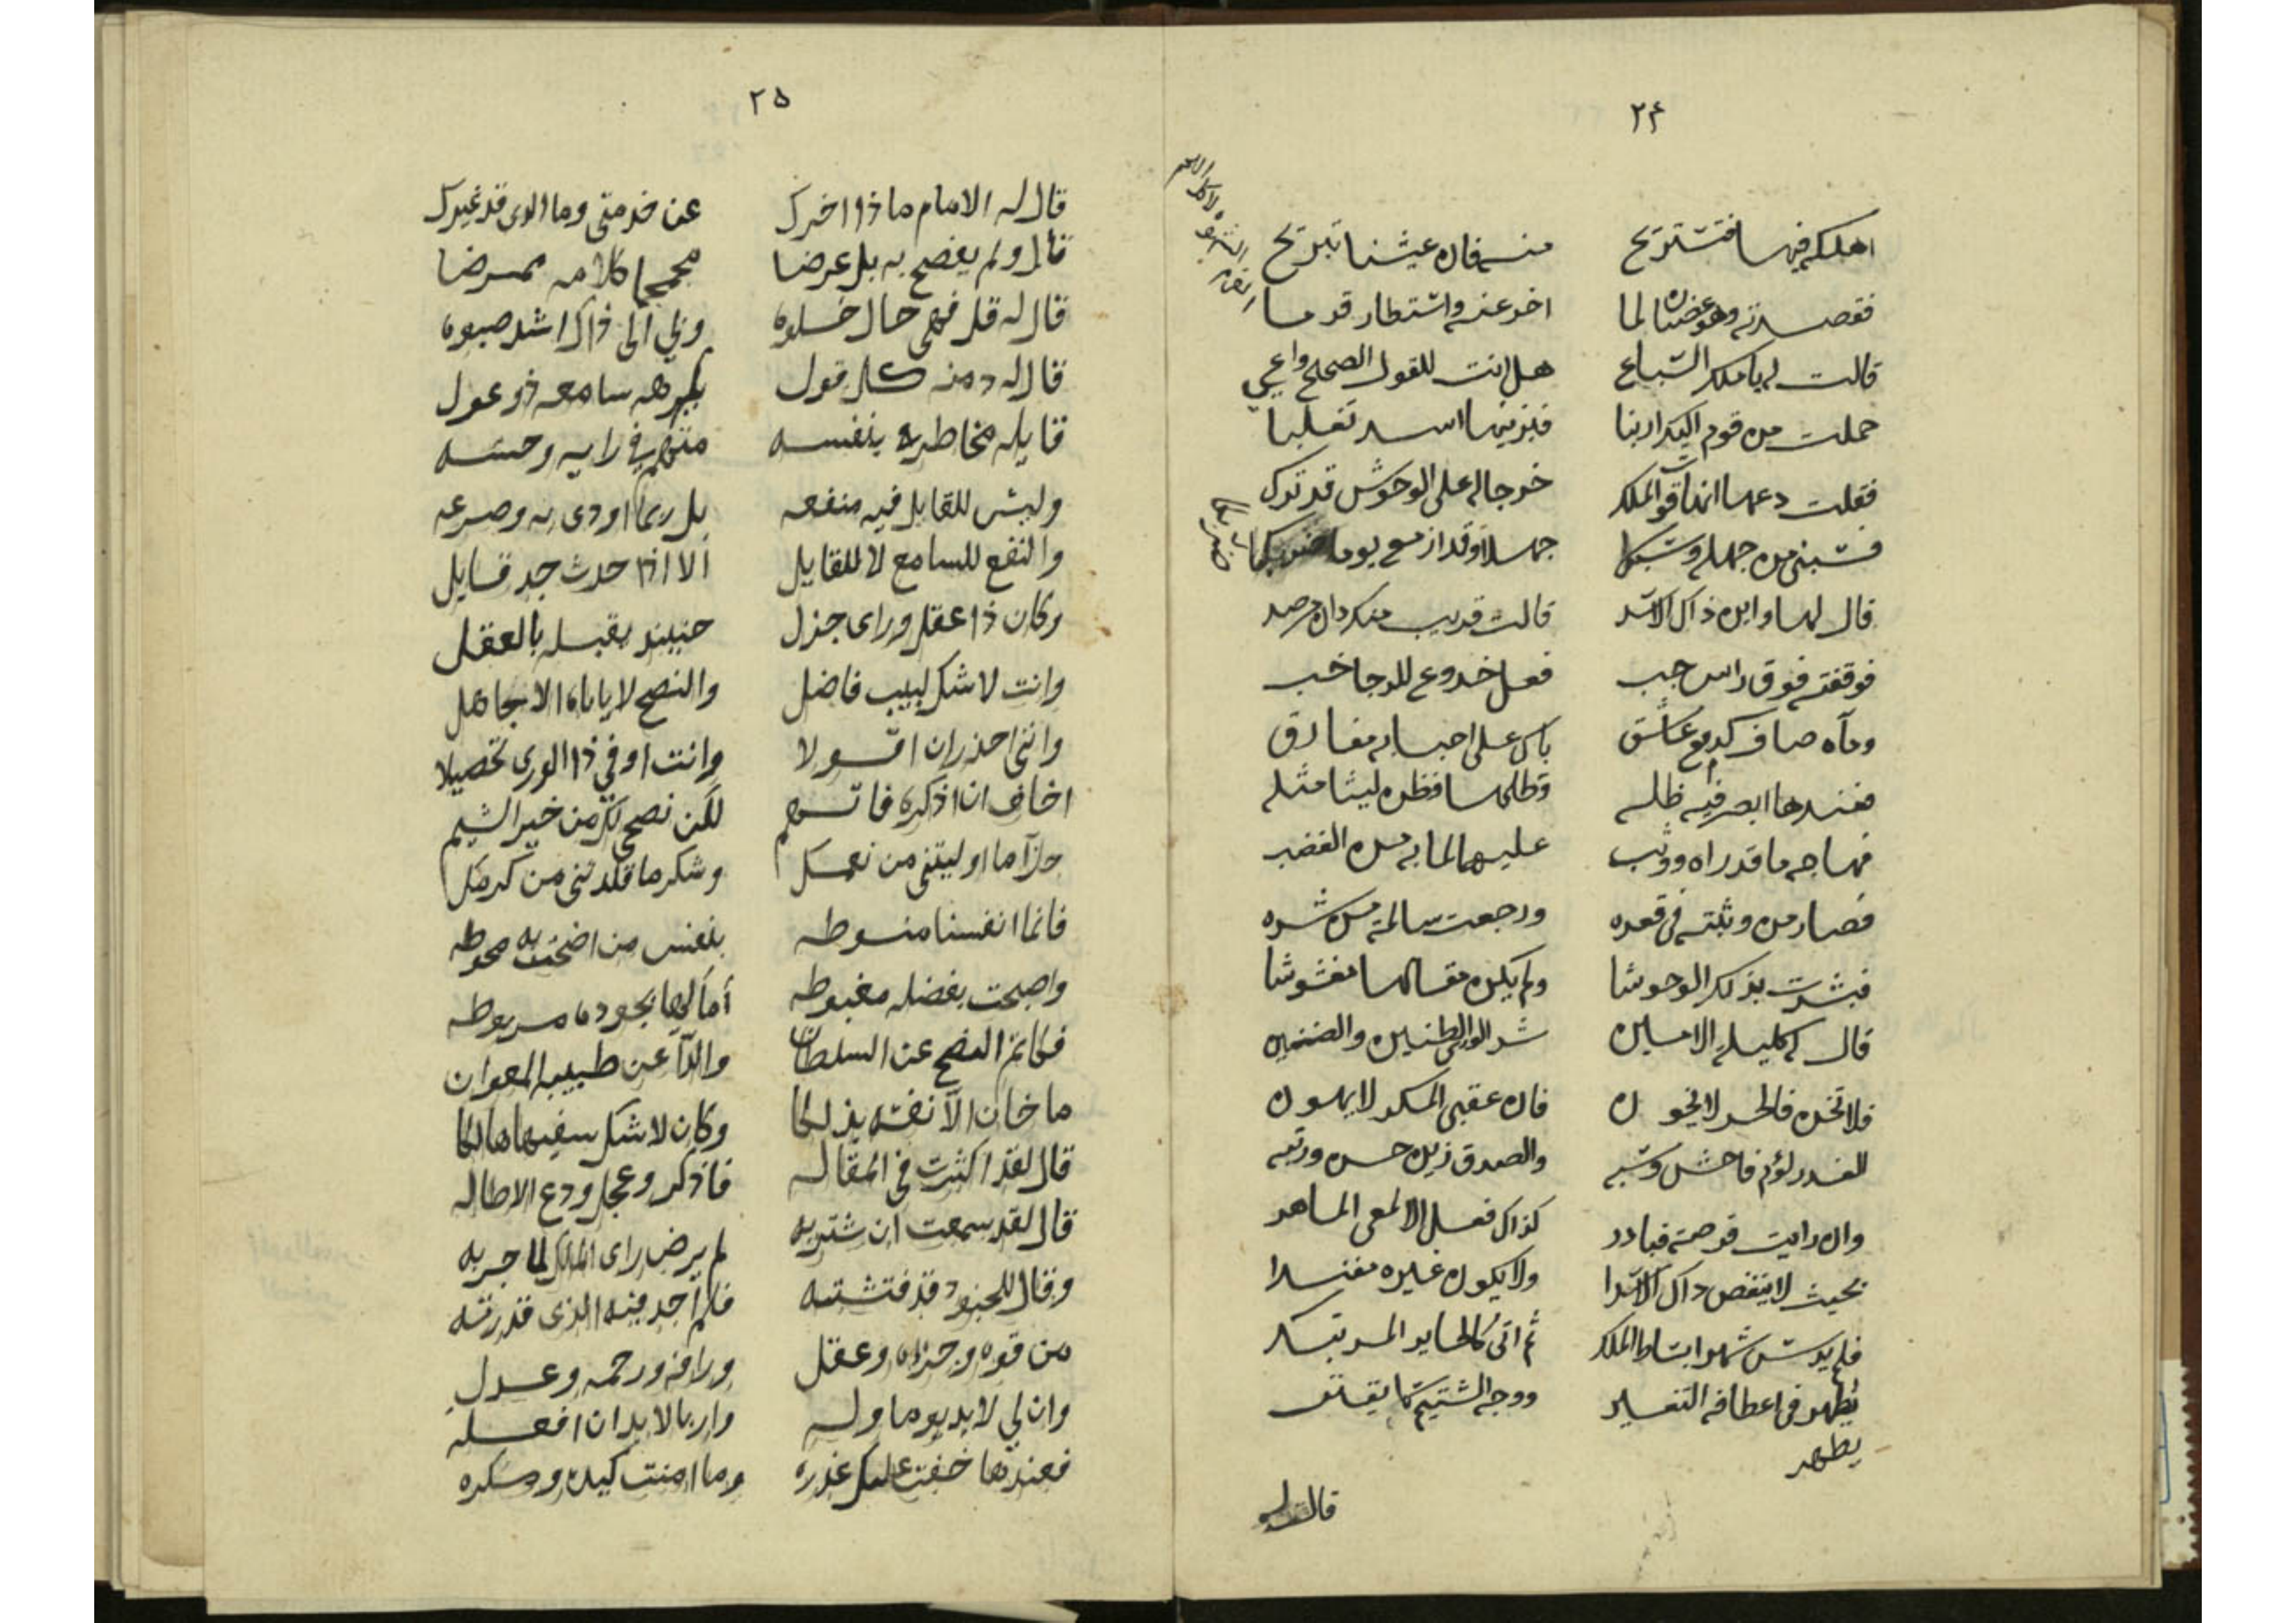 ٢٤
اهلكه فيها فتستريح منه فان عيشنا تبريح
فقصدته وهو غضبان لما اخر عنه واستطار قدما
قالت له يا ملك السباع هل انت للقول الصحيح واعي
حملت من قوم اليك ارنبا فبزنيها اسد تغلبا
فقلت دعها انها قوت الملك خوجا له على الوحوش قد ترك
فسبني من جهله وسبكا جهلا وقد ازمع يوما
قال لها واين ذاك الاسد قالت قريب منك دان مرصد
فوقفته فوق راس جب فعل خدوع للدجا خب
ومآه صاف كدموع عاشق باك على احبابه مفارق
فعندها ابصر فيه ظله وظلها فظن ليثا مثله
فهاجه ما قد راه ووثب عليهما لما به من الغضب
فصار من وثبته في قعره ورجعت سالمة من شره
فبشرت بذلك الوحوشا ولم يكن مقالها مغشوشا
قال له كليله الامين شر الورى الظنين والضنين
فلا تخن فالحر لا يخون فان عقبى المكر لا يهون
الغدر لؤم فاحش وشبه والصدق زين حسن ورتبه
وان رايت فرصة فبادر كذاك فعل الالمعي الماهر
بحيث لا ينغص ذاك الاسدا ولا يكون غيره مفسدا
فلم يدس شهرا بساط الملك ثم اتى كالحاير المرتبك
يظهر في اعطافه التغيير ووجه الشتيم
يظهر
قالت له
٢٥
قال له الامام ما ذا اخرك عن خدمتي وما الذي قد غيرك
قال ولم يفصح به بل عرضا مجمجما كلامه ممرضا
قال له قل فهي حال خلوه وبي الى ذاك اشد صبوه
قال له ومن كل قول يكرهه سامعه ذو عول
قايله مخاطر بنفسه متهم في رايه وحسه
وليس للقايل فيه منفعه بل ربما اودى به وصرعه
والنفع للسامع لا للقايل الا اذا حدث جد قايل
وكان ذا عقل وراى جزل حينيذ يقبله بالعقل
وانت لا شك لبيب فاضل والنصح لا ياباه الا جاهل
وانني احذر ان اقولا وانت اوفى ذا الورى تحصيلا
اخاف ان اذكره فاتهم لكن نصحي لك من خير الشيم
جزآ ما اوليتني من نعمك وشكر ما قلدتني من كرمك
فانما انفسنا منوطه بنفس من اضحت به محوطه
واصبحت بفضله مغبوطه آمالها بجوده مربوطه
فكاتم النصح عن السلطان والدآ عن طبيبه المعوان
ما خان الا نفسه بذلكا وكان لا شك سفيها هالكا
قال لقد اكثرت في المقاله فاذكر وعجل ودع الاطاله
قال لقد سمعت ان شتربه لم يرض راى الملك لما جربه
وقال للجنود قد فتشته فلم اجد فيه الذي قدرته
من قوه وجراه وعقل ورافه ورحمه وعدل
وان لي لا بد يوما وله واربا لا بد ان افعله
فعندها خفت عليك غدره وما امنت كيده ومكره